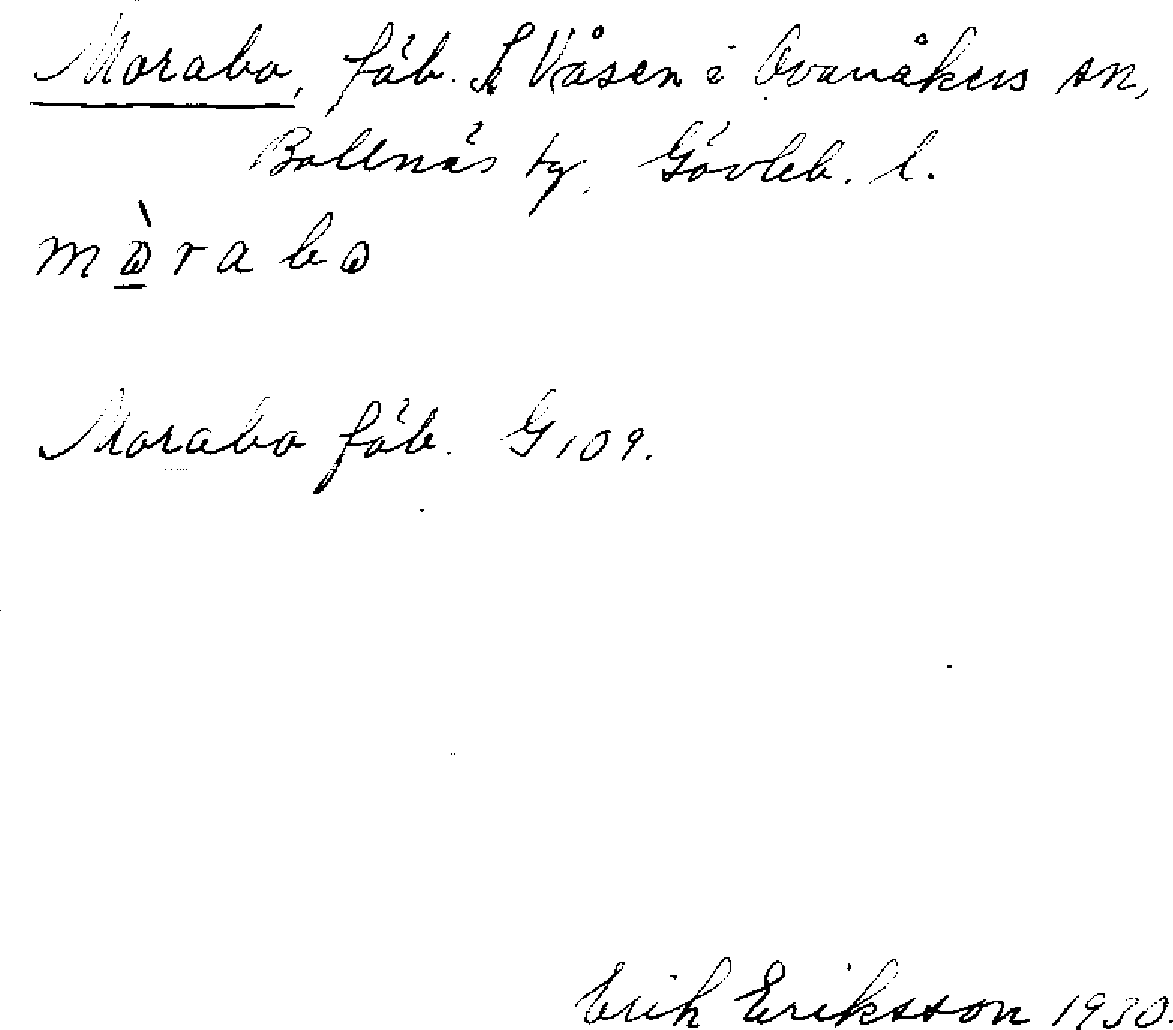 Morabo, fäb. t Våsen i Ovanåkers sn,
Bollnäs tg, Gävleb. l.
mòrabo
Morabo fäb. G 109.
Erik Eriksson 1930.